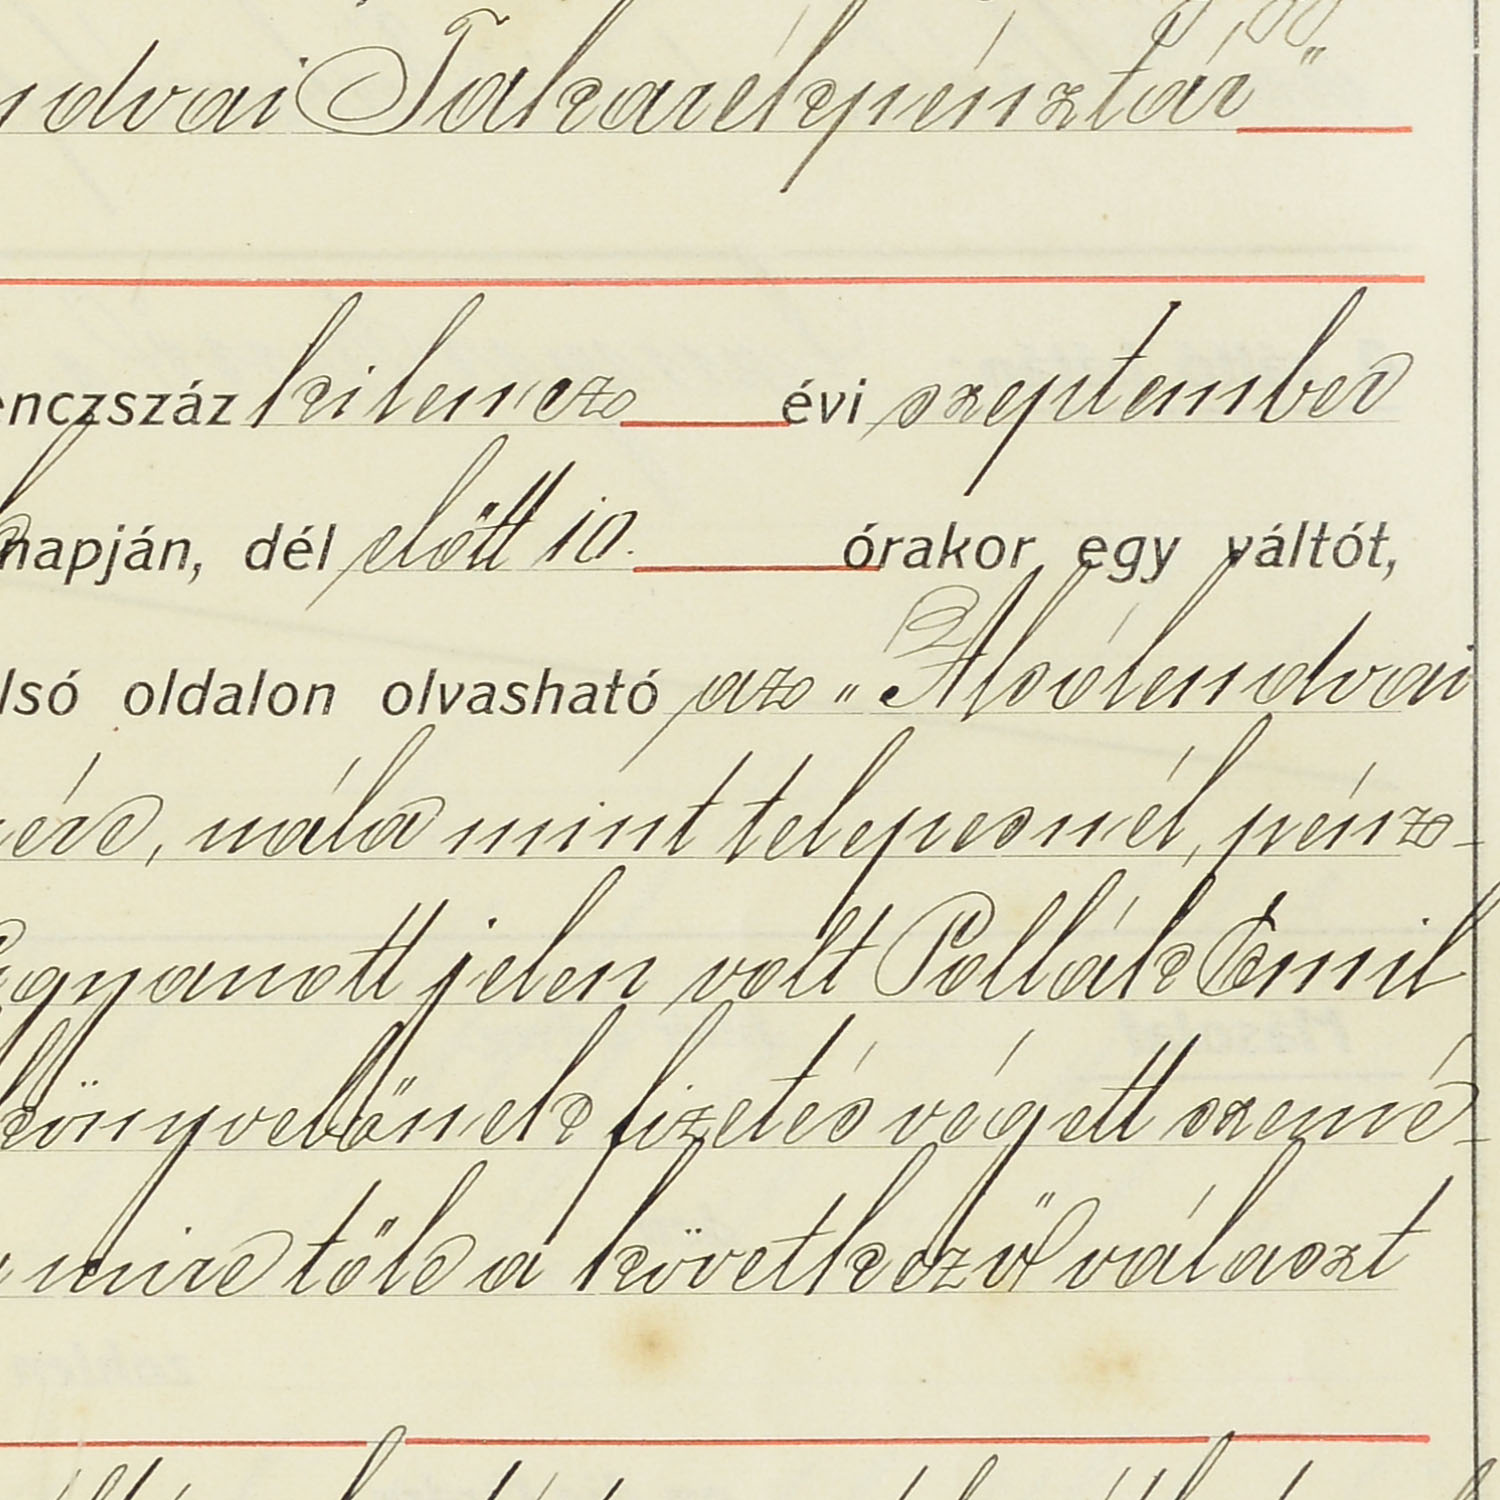 ndvai Takarékpénztár"
enczszáz kilencz évi szeptember
napján, dél előtt 10. órakor egy váltót,
lsó oldalon olvasható az „Alsólendvai
ére, nála mint telepesnél, pénz-
Ugyanott jelen volt Pollák Emil
könyvelőnek fizetés végett szemé-
mire tőle a következő választ